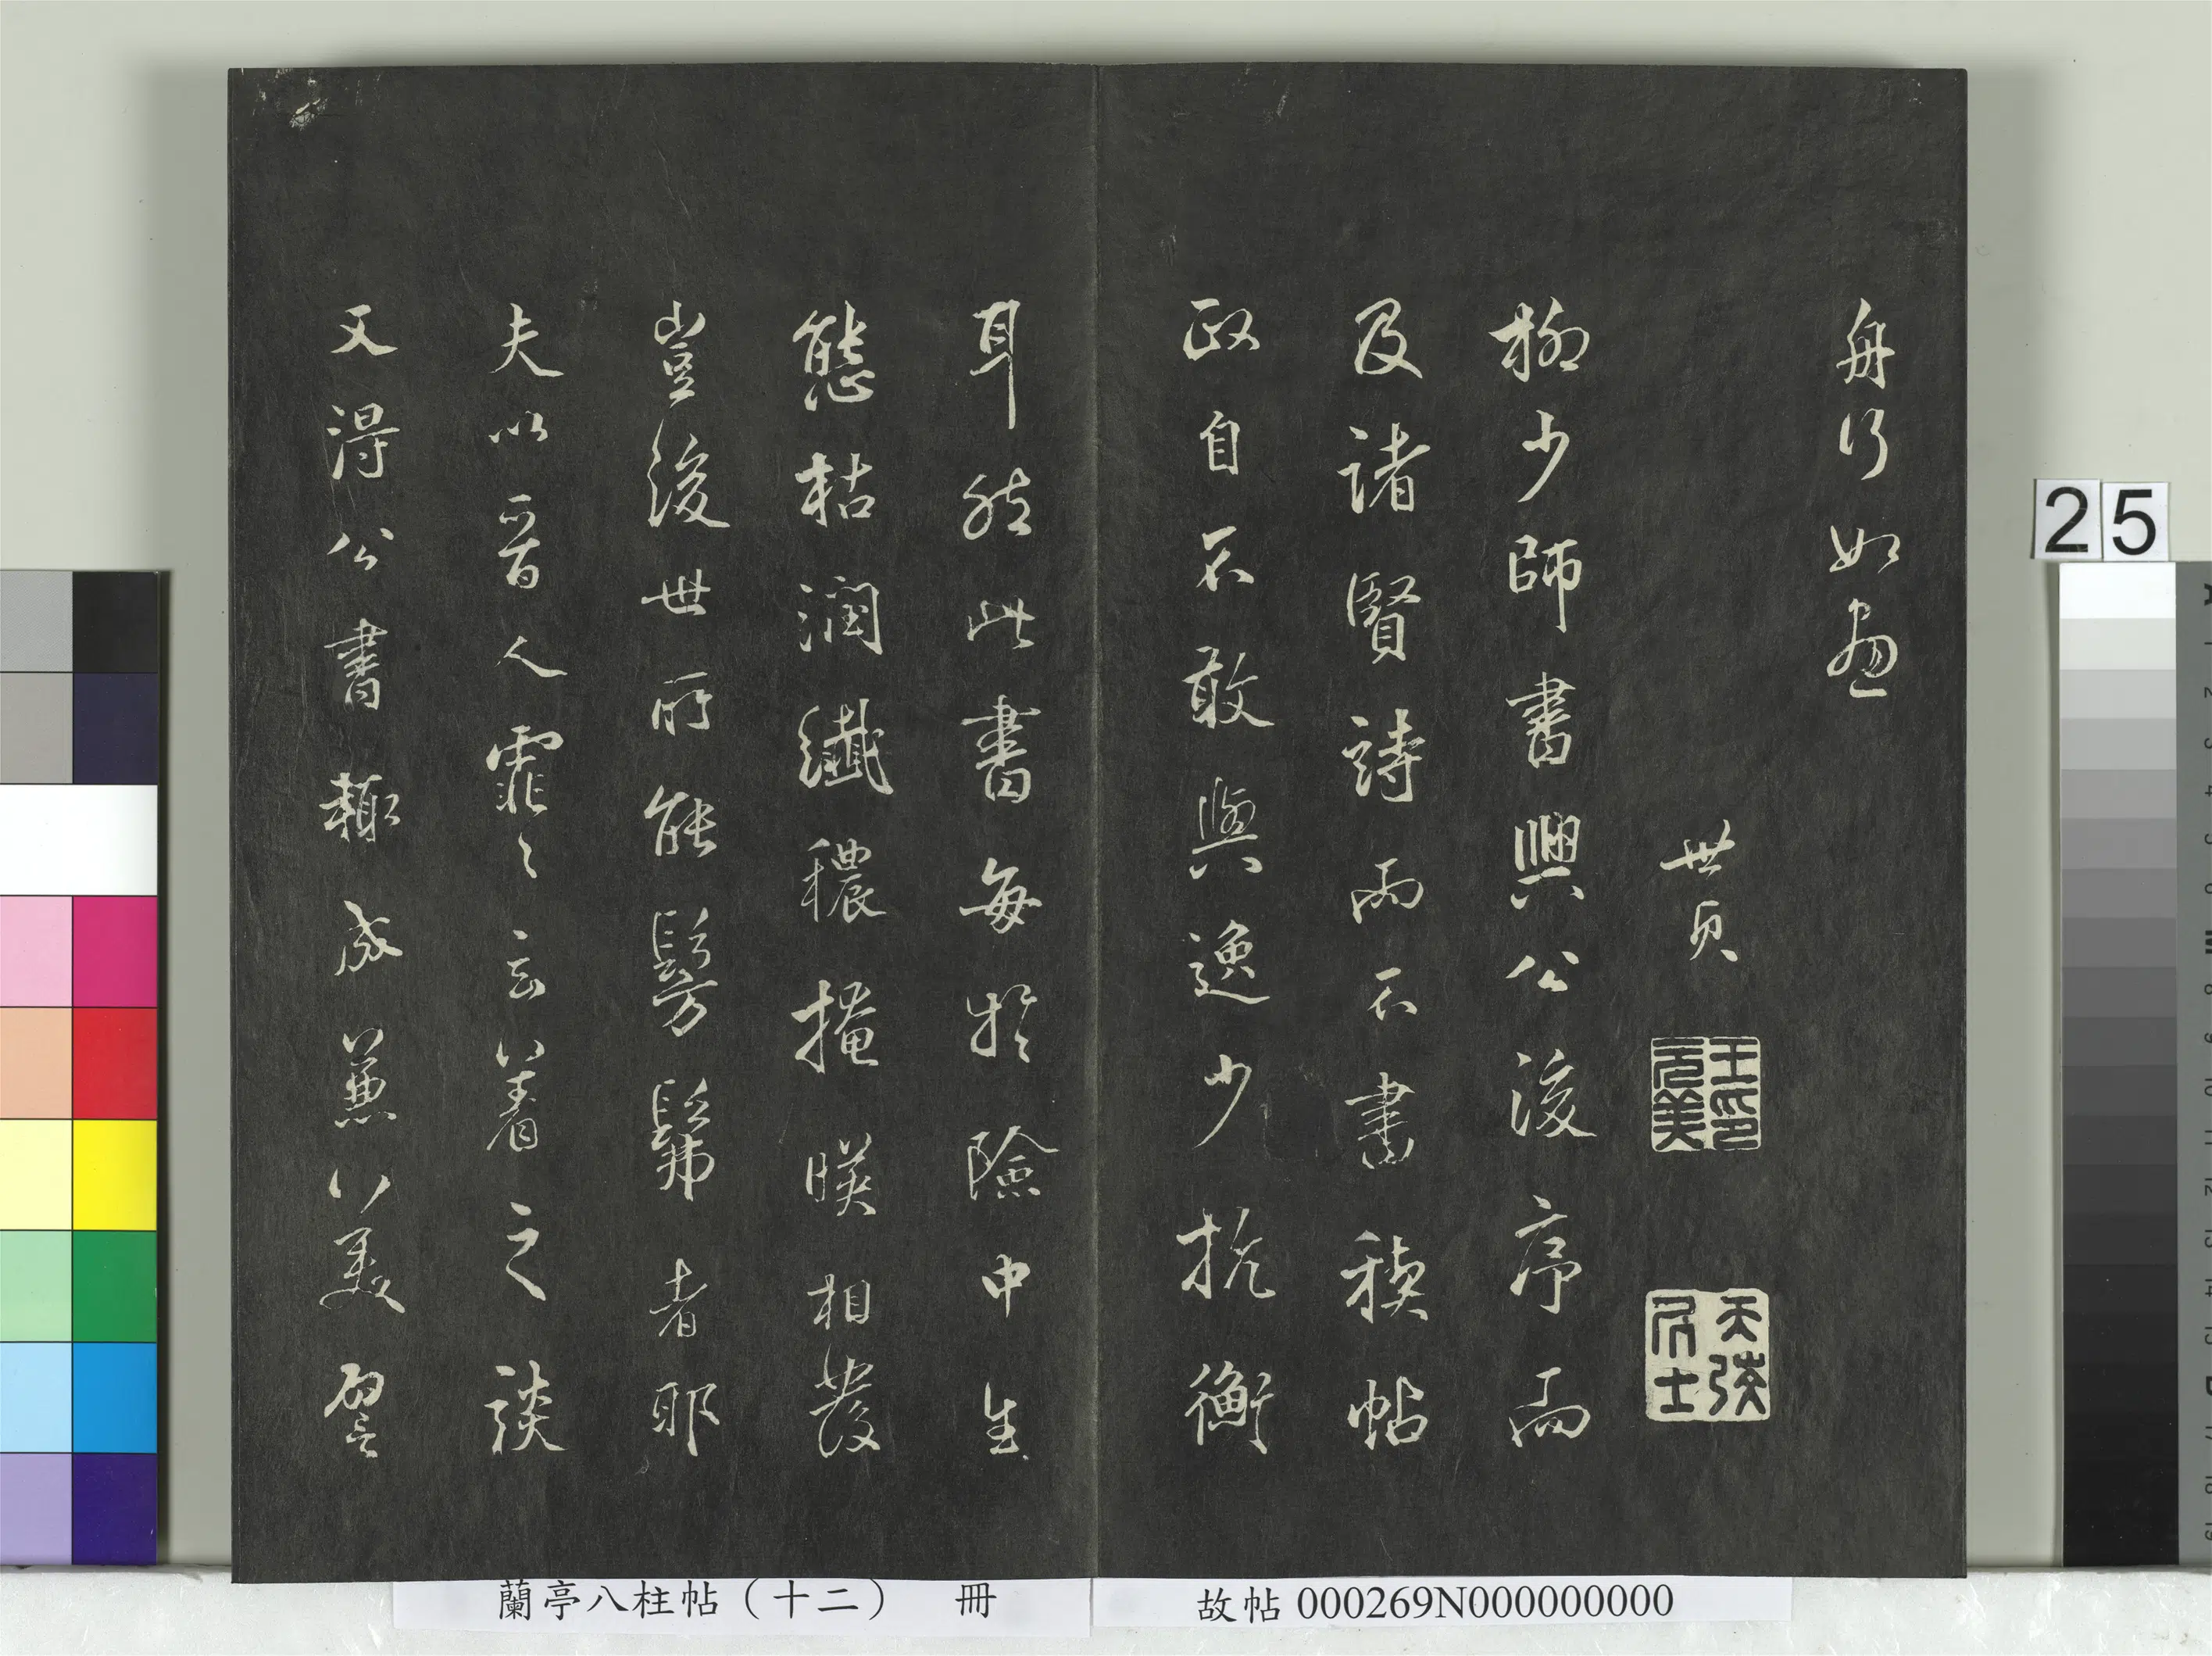 舟行如畫
世貞
王氏元美
天弢居士
柳少師書興公後序而
及諸賢詩而不書稧帖
政自不敢與逸少抗衡
耳然此書每於險中生
態枯潤纖穠掩暎相發
豈後世所能髣髴者耶
夫以晉人霏々玄著之談
又得公書輒成兼美譬
25
蘭亭八柱帖（十二） 冊
故帖 000269N000000000